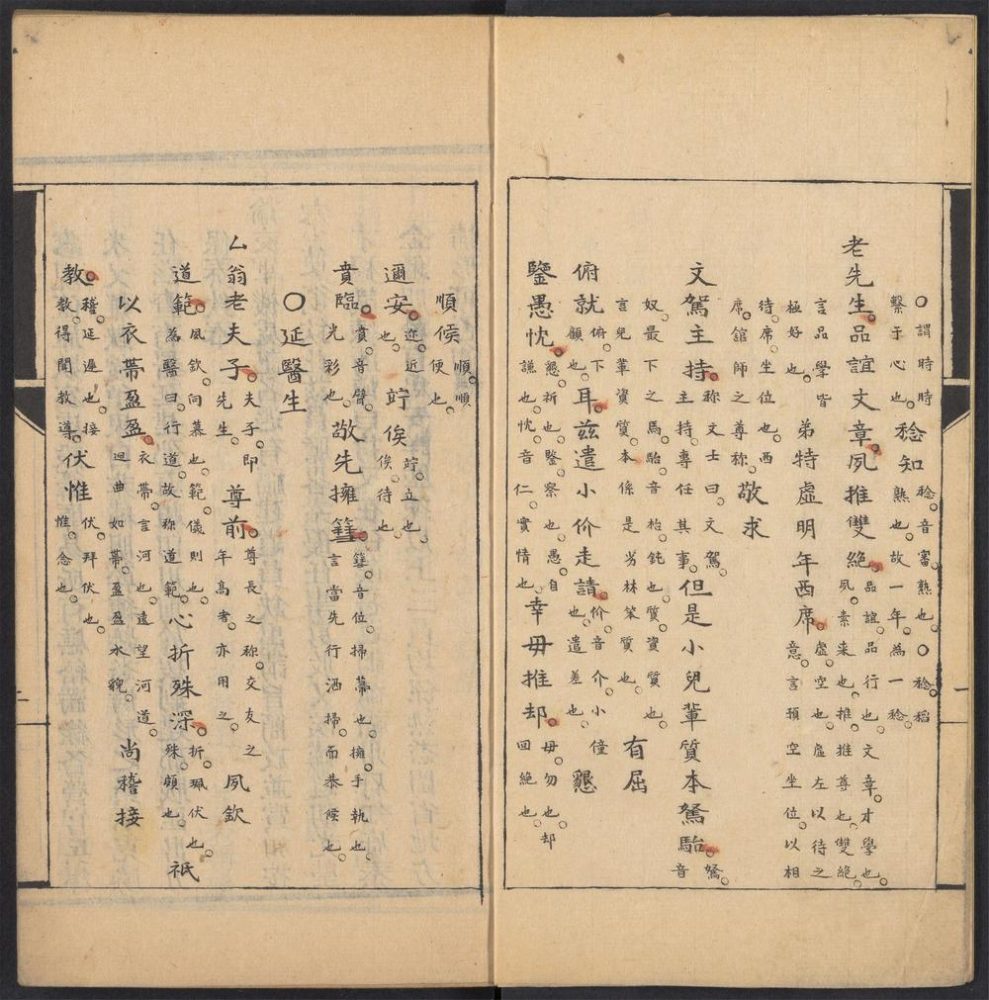 ○謂時時繫于心也。稔知稔音審熟也。○稔稻熟也故一年為一稔。
老先生。品誼文章夙推雙絕。品誼品行也文章才學也。夙素来也推推尊也雙絕
言品學皆極好也。弟特虛明年西席。虛空也虛左以待之意言預空坐位以相
待。席坐位也。西席舘師之尊称。敬求
文駕主持。称文士曰文駕。主持專任其事。但是小兒輩質本駑駘。駑音
奴最下之馬駘音枱鈍也質資質也。言兒輩資質本係是劣林笨質也。有屈
俯就俯下顧也。耳。茲遣小价走請。价音介小僮也遣差也。懇
鑒愚忱。懇祈也鑒察也愚自謙也忱音仁實情也。幸毋推却。毋勿也却回絕也。
一
順候順順便也。
邇安。邇近也。竚俟竚立也俟待也
賁臨。賁音臂光彩也。敬先擁篲。篲音位掃帚也擁手執也。言當先行洒掃而恭候也。
○延醫生
厶翁老夫子。夫子即先生。尊前。尊長之称交友之年高者亦用之。夙欽
道範。風欽向慕也範儀則也。為醫曰行道故称道範。心折殊深。折珮伏也。殊頗也。祇
以衣帶盈盈。衣帶言河也遠望河道迴曲如帶盈盈水貌。尚稽接
教。稽延遲也。接教得聞教導。伏惟伏拜伏也。惟念也。
二